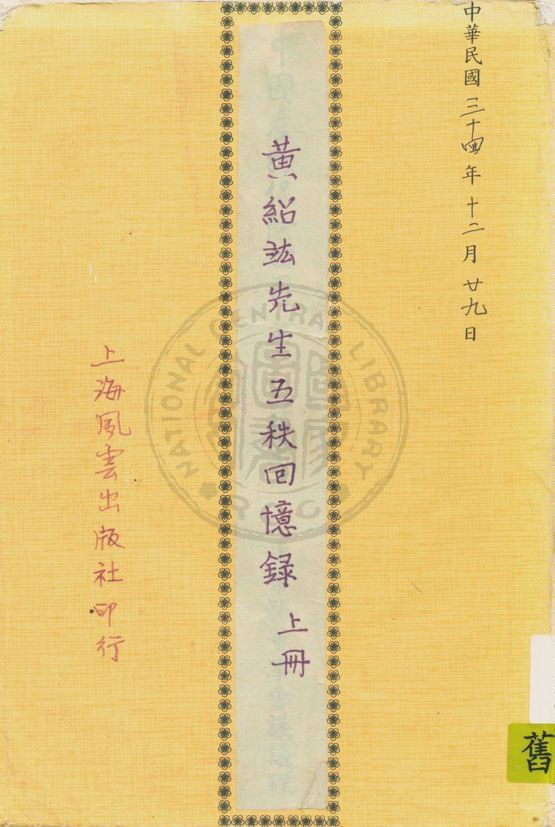 中華民國三十四年十二月廿九日
黃紹竑先生五秩回憶錄 上冊
上海風雲出版社印行
NATIONAL CENTRAL LIBRARY
R.O.C
舊